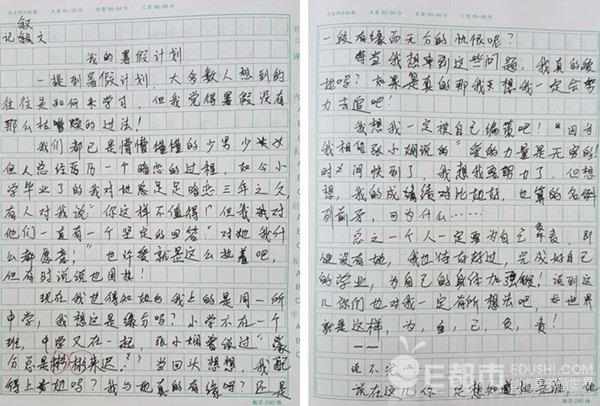 叙
记叙文
我的暑假计划
一提到暑假计划,大多数人想到的
往往是如何来学习,但我觉得暑假没有
那么枯燥的过法!
我们都已是懵懵懂懂的少男少女
但人总经历一个暗恋的过程,如今小
学毕业了的我对她足足暗恋三年之久,
有人对我说"你这样不值得!"但我对
他们一直有一个坚定的回答"对她我什
么都愿意!"也许爱就是这么拉着吧,
但有时说说也困扰!
现在我也得知她与我上的是同一所
中学,我想这是缘分吗?小学不在一个
班,中学又在一起,张小娴曾说过"缘
分总是姗姗来迟。"当回头想想,我配
得上她吗?我与她真的有缘吗?还是
一段有缘而无分的快恨呢?
每当我想到这些问题,我真的爱
她吗?如果是真的那我想我一定会努
力去追吧!
我想我一定被自己编策吧!"因为
我相信张小娴说的"爱的力量是无穷的!
时间快到了,我想我要努力了,但想
想,我的成绩对比她,也算名列
前茅,因为什么……
总之一个人一定要为自己,即
使没有她,我也得好好过,完成好自己
的学业,为自己的身体加强锻!谈到这
儿你们也对我一定有所想法吧,世界
就是这样,为,自,己,负,责!
一一
还不完
谈在这儿,你一定想知道她是谁,她
E都市
EDUSHI.COM